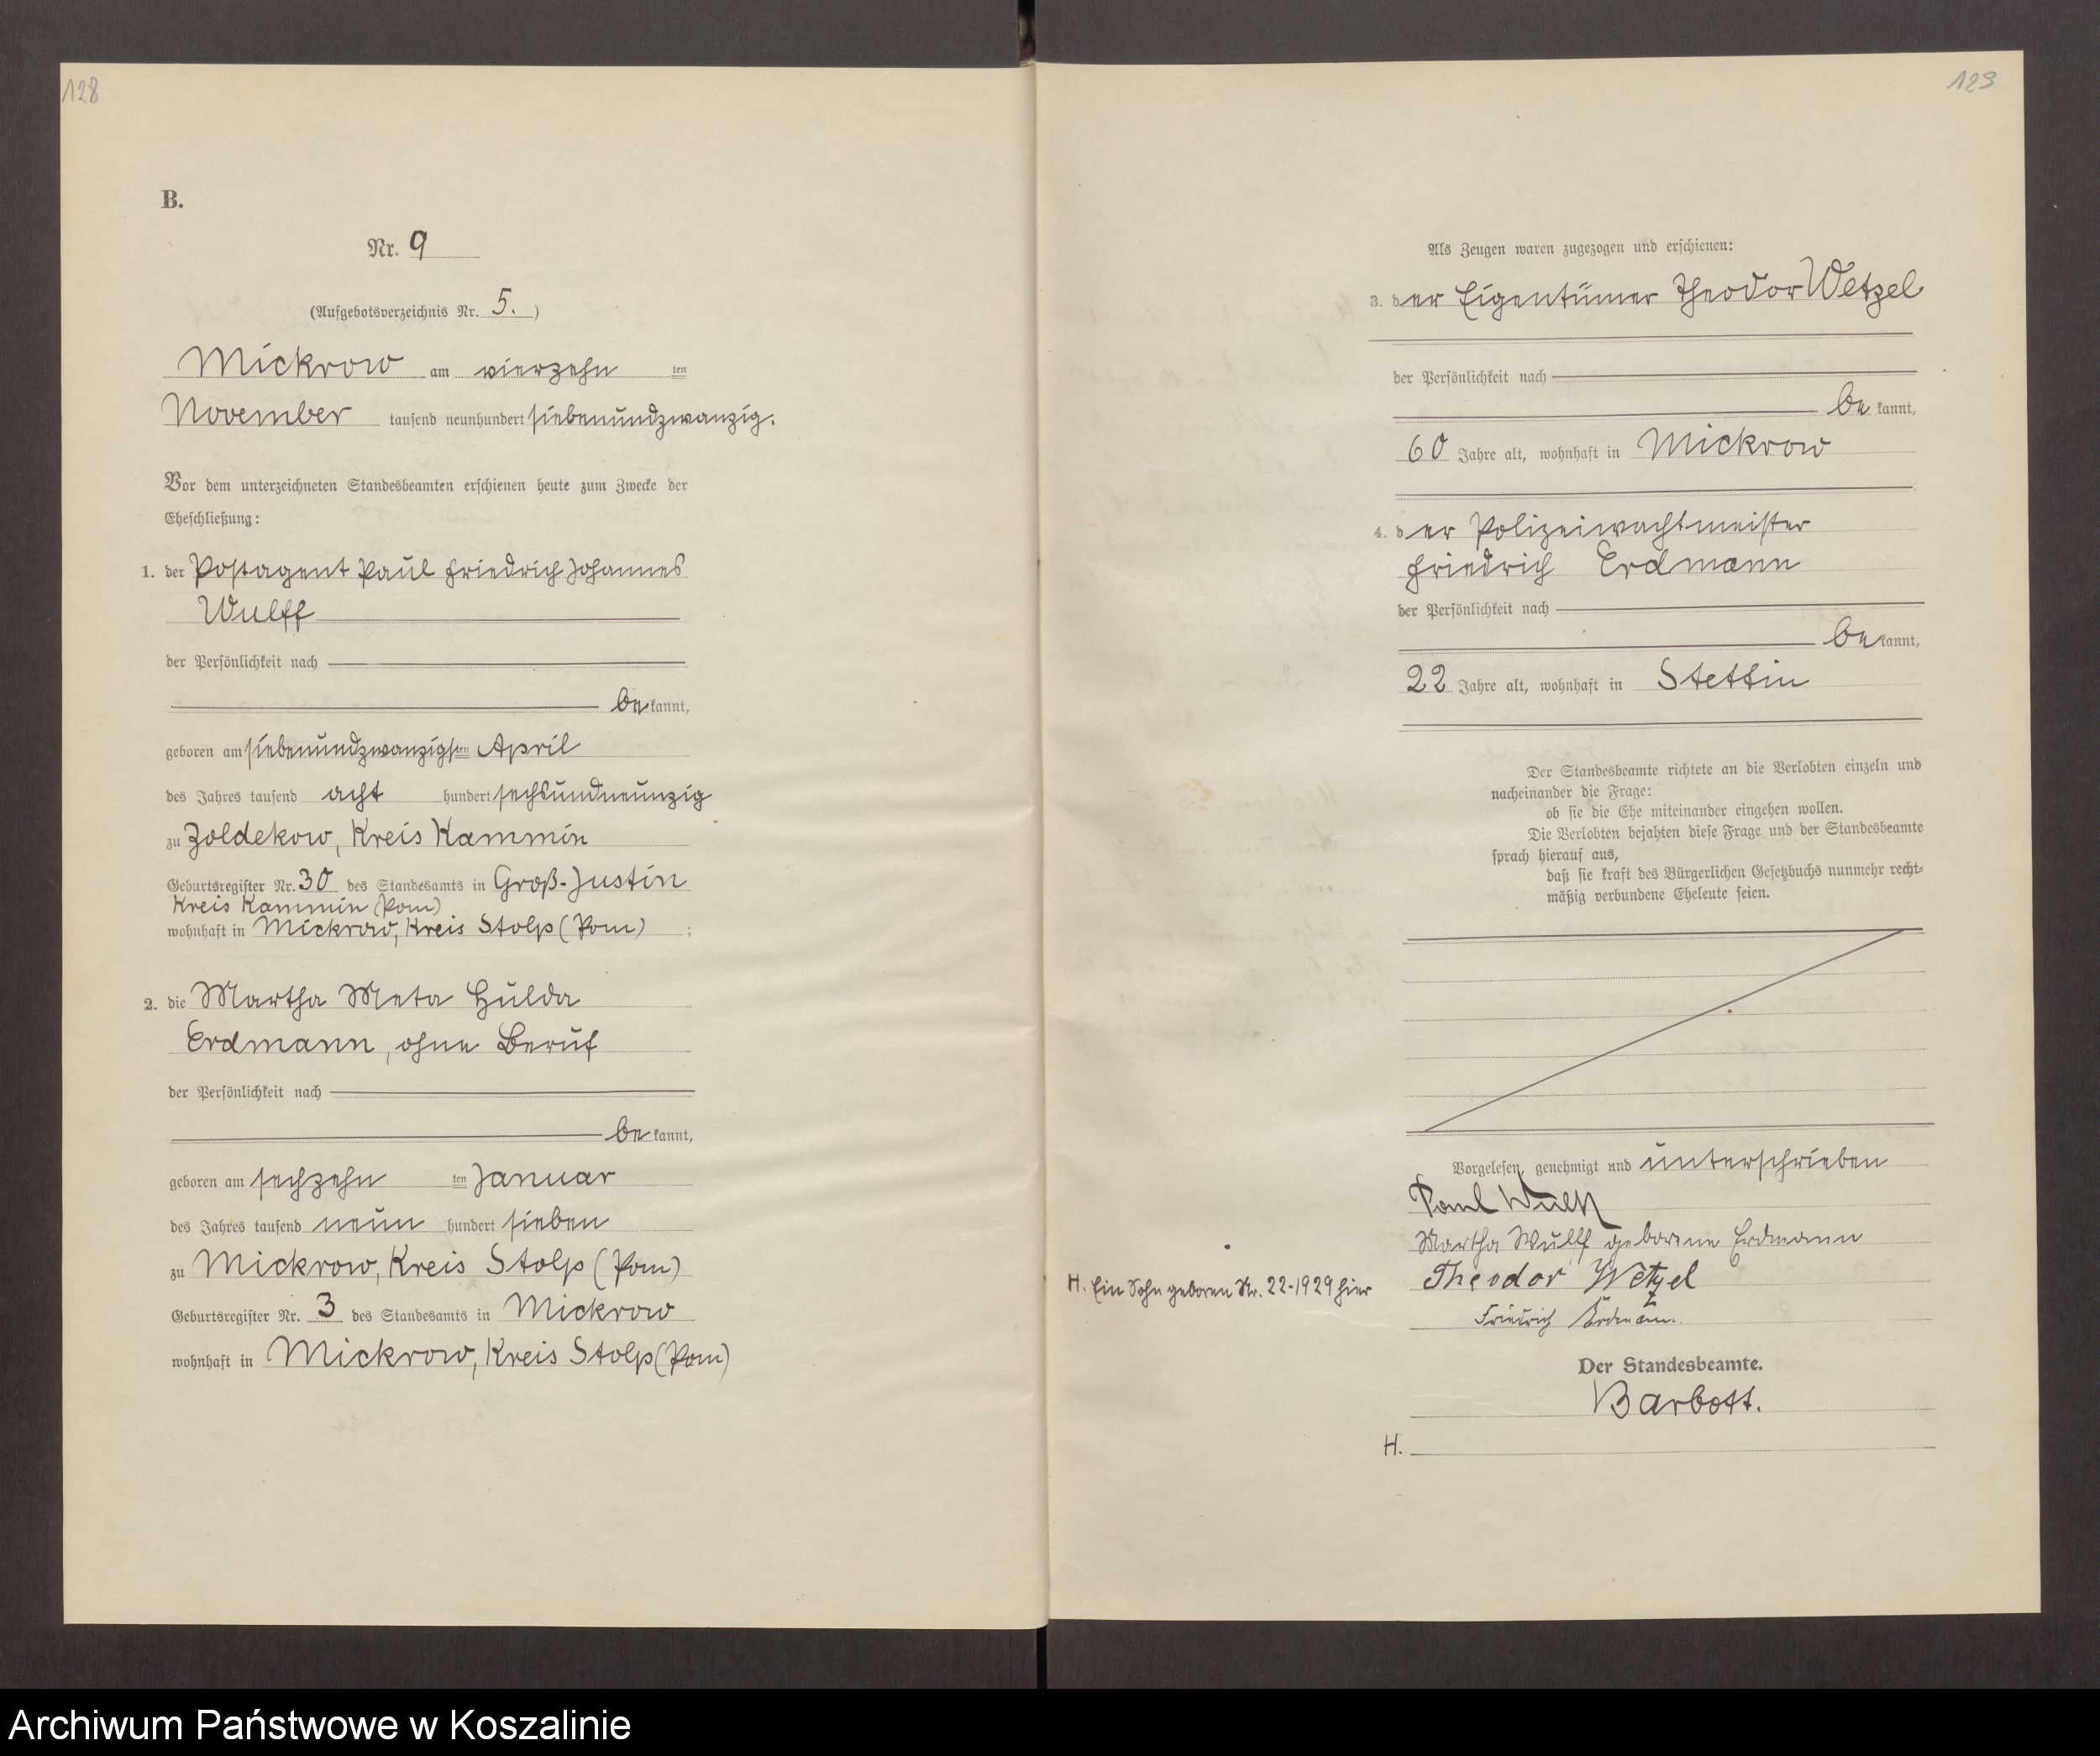 128
B.
Nr. 9
(Aufgebotsverzeichnis Nr. 5.)
Mickrow am vierzehn ten
November tausend neunhundert siebenundzwanzig.
Vor dem unterzeichneten Standesbeamten erschienen heute zum Zwecke der
Eheschließung:
1. der Postagent Paul Friedrich Johannes
Wulff
der Persönlichkeit nach
be kannt,
geboren am siebenundzwanzigsten April
des Jahres tausend acht hundert sechsundneunzig
zu Zoldekow, Kreis Kammin
Geburtsregister Nr. 30 des Standesamts in Groß-Justin
Kreis Kammin (Pom)
wohnhaft in Mickrow, Kreis Stolp (Pom) ;
2. die Martha Meta Hulda
Erdmann, ohne Beruf
der Persönlichkeit nach
be kannt,
geboren am sechzehn ten Januar
des Jahres tausend neun hundert sieben
zu Mickrow, Kreis Stolp (Pom)
Geburtsregister Nr. 3 des Standesamts in Mickrow
wohnhaft in Mickrow, Kreis Stolp (Pom)
129
Als Zeugen waren zugezogen und erschienen:
3. der Eigentümer Theodor Wetzel
der Persönlichkeit nach
be kannt,
60 Jahre alt, wohnhaft in Mickrow
4. der Polizeiwachtmeister
Friedrich Erdmann
der Persönlichkeit nach
be kannt,
22 Jahre alt, wohnhaft in Stettin
Der Standesbeamte richtete an die Verlobten einzeln und
nacheinander die Frage:
ob sie die Ehe miteinander eingehen wollen.
Die Verlobten bejahten diese Frage und der Standesbeamte
sprach hierauf aus,
daß sie kraft des Bürgerlichen Gesetzbuchs nunmehr recht-
mäßig verbundene Eheleute seien.
Vorgelesen, genehmigt und unterschrieben
Paul Wulff
Martha Wulff geborene Erdmann
Theodor Wetzel
H. Ein Sohn geboren Nr. 22-1929 hier
Friedrich Erdmann.
Der Standesbeamte.
Barbott.
H.
Archiwum Państwowe w Koszalinie